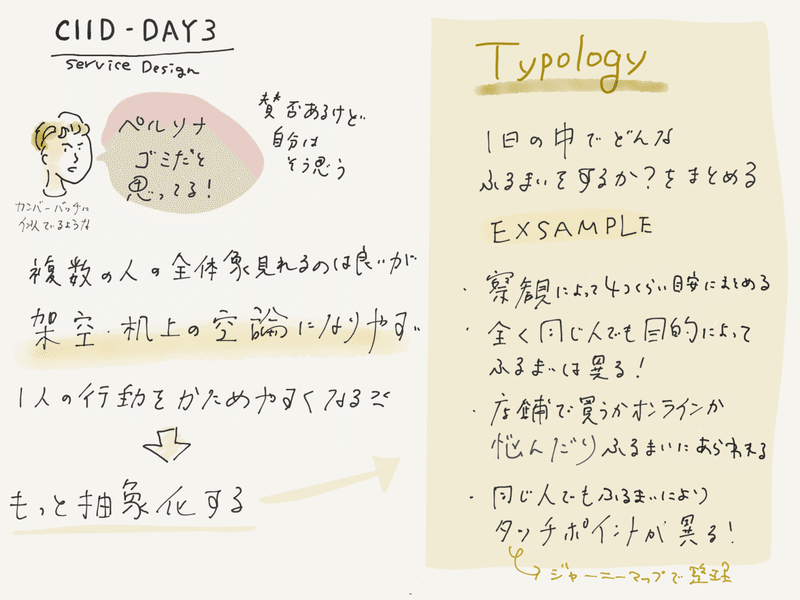 CIID - DAY3
service Design
ペルソナ
ゴミだと
思ってる！
賛否あるけど
自分は
そう思う
カンバーバッチに
似ているような
複数の人の全体象見れるのは良いが
架空・机上の空論になりやすい
1人の行動をかためやすくなる
もっと抽象化する
Typology
1日の中でどんな
ふるまいをするか？をまとめる
EXSAMPLE
・察観によって4つくらい目安にまとめる
・全く同じ人でも目的によって
ふるまいは異る！
・店舗で買うかオンラインか
悩んだりふるまいにあらわれる
・同じ人でもふるまいにより
タッチポイントが異る！
ジャーニーマップで整理